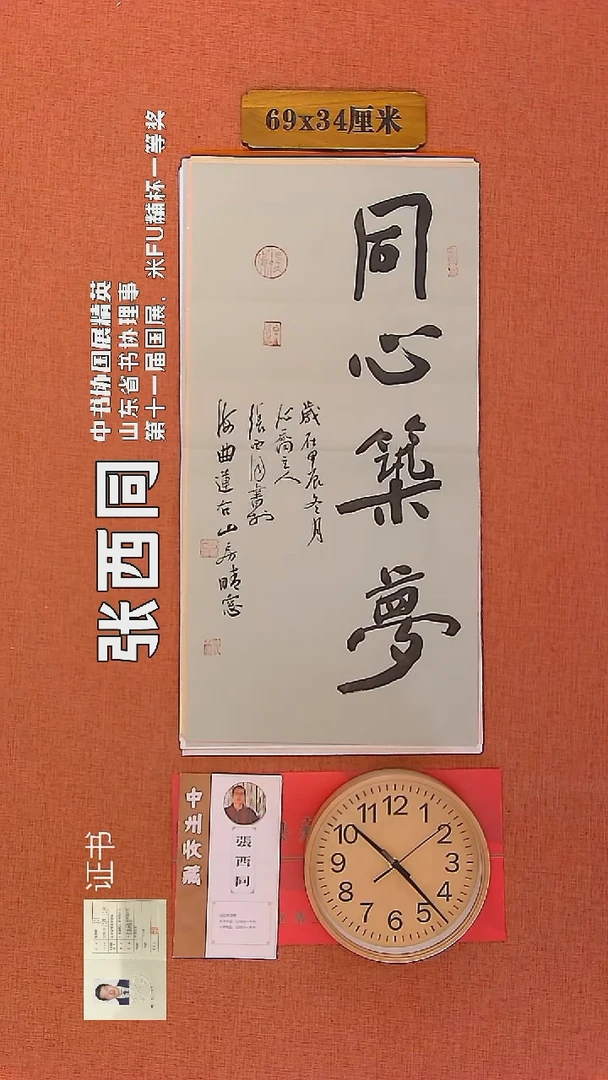 69x34厘米
同心築夢
歲在甲辰冬月
沁齋主人
張西同書於
海曲蓮台山房晴窓
中书协国展精英
山东省书协理事
第十一届国展，米FU黼杯一等奖
张西同
证书
中州收藏
張西同
12
1
2
3
4
5
6
7
8
9
10
11